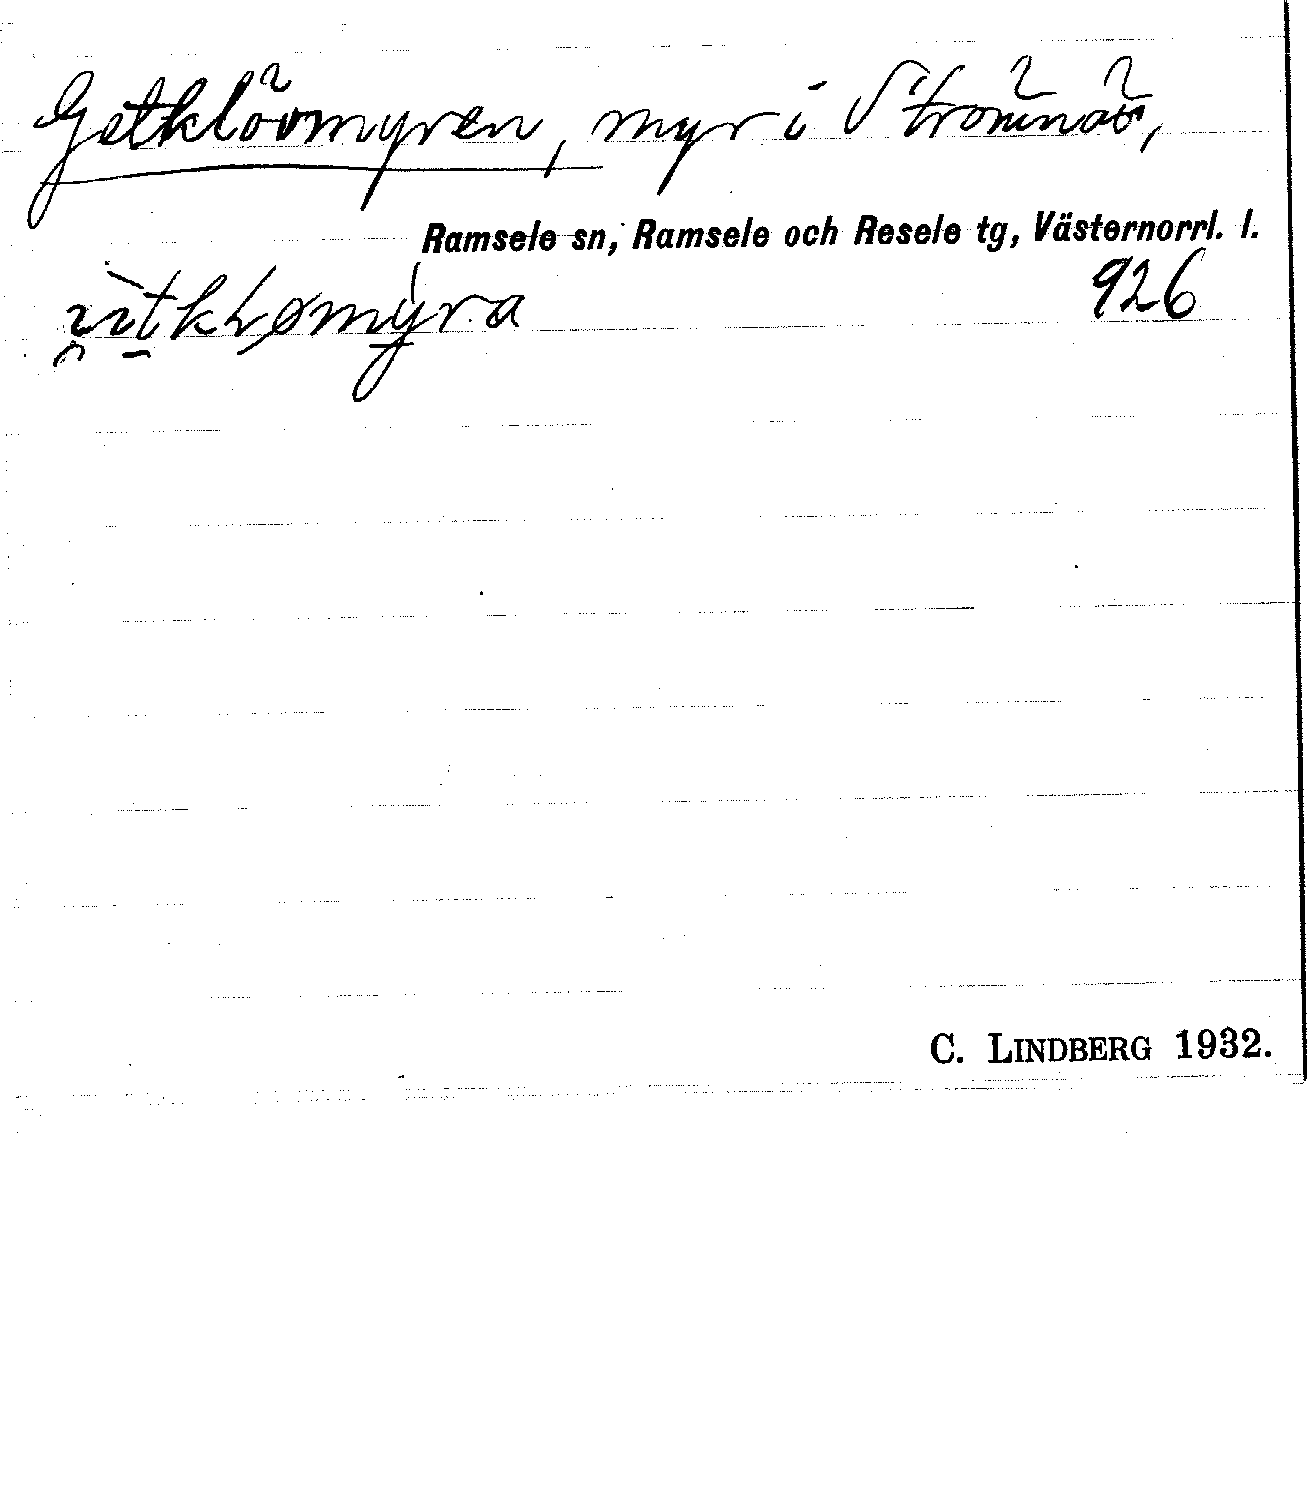 Getklövmyren, myr i Strömnäs,
Ramsele sn, Ramsele och Resele tg, Västernorrl. l.
926
C. LINDBERG 1932.